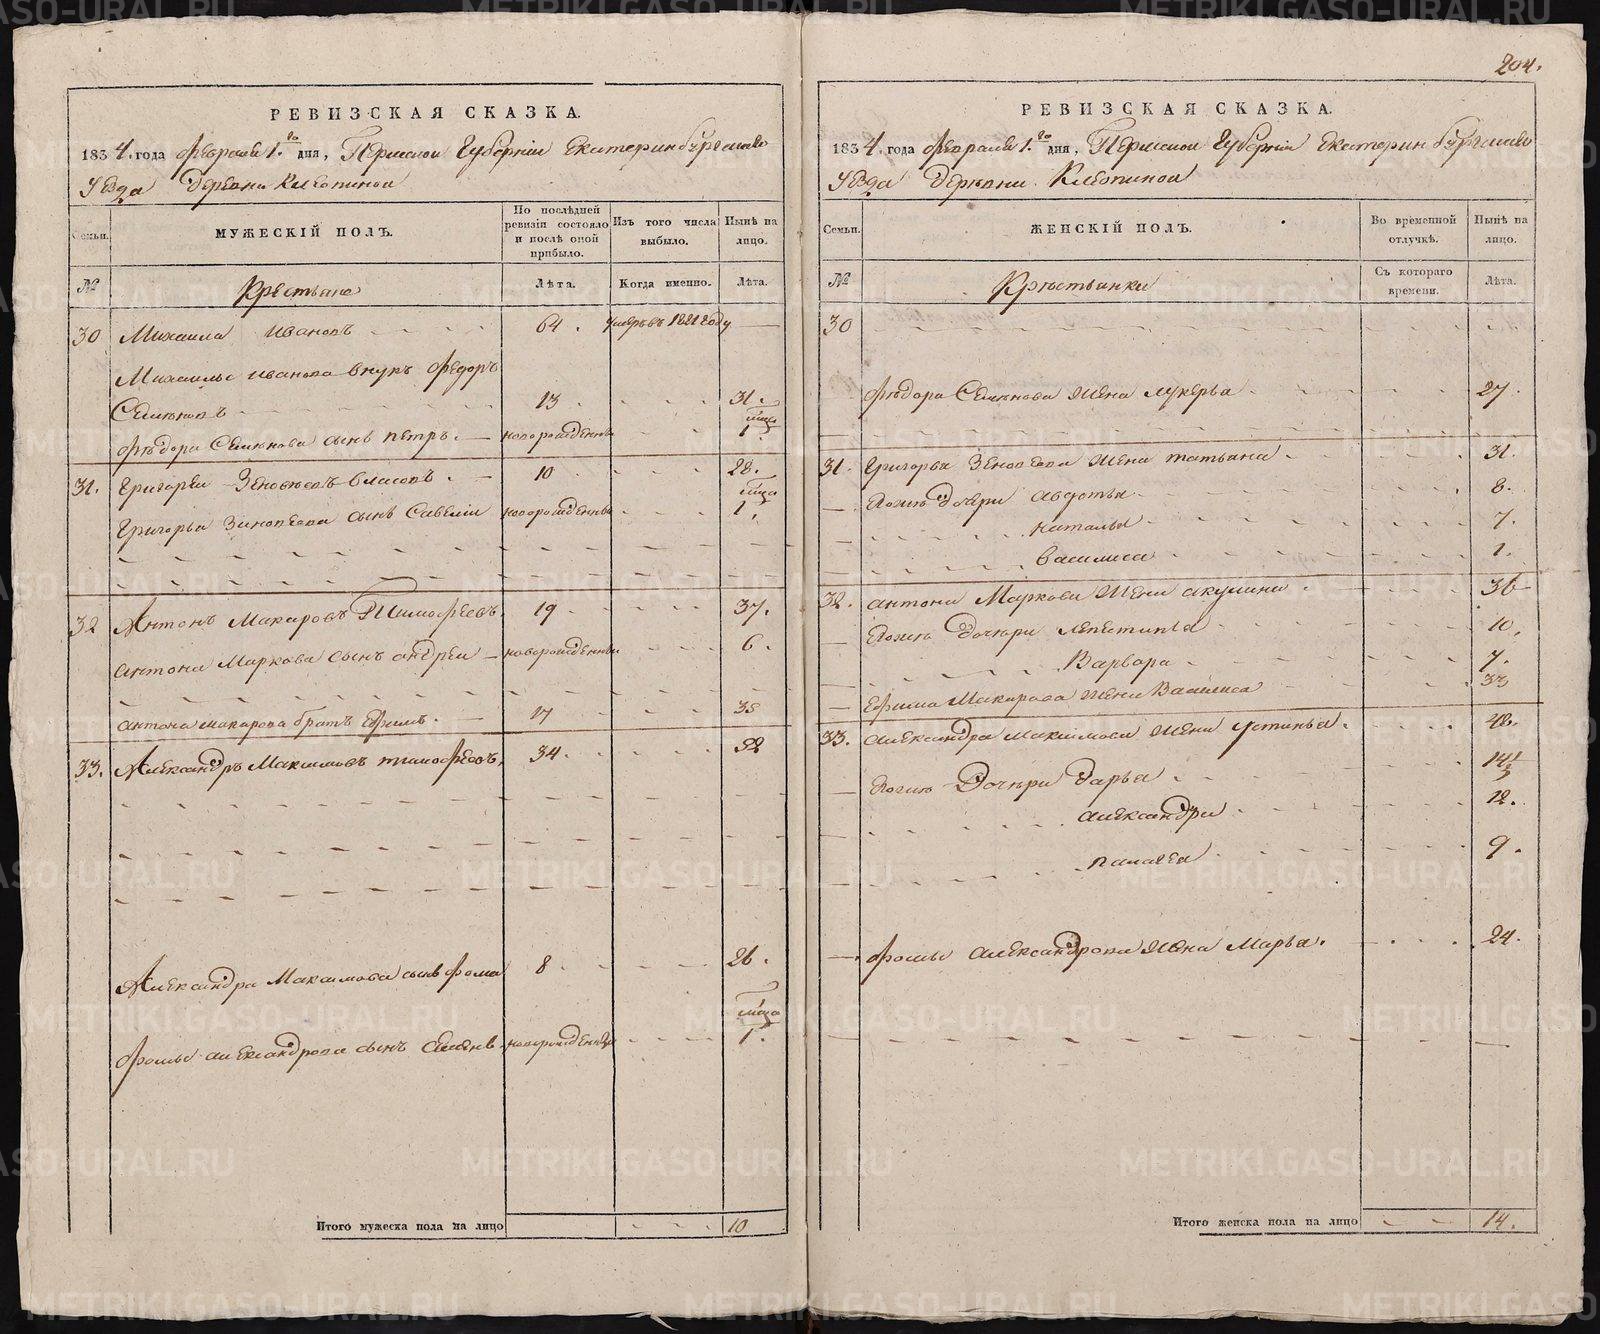 204.
РЕВИЗСКАЯ СКАЗКА.
1834. года февраля 1.го дня, Пермской Губернии Екатеринбургскаго
Уезда Деревни Клеопиной
Семьи.
МУЖЕСКІЙ ПОЛЪ.
По послѣдней ревизіи состояло и послѣ оной прибыло.
Изъ того числа выбыло.
Нынѣ на лицо.
№
Крестьяне
Лѣта.
Когда именно.
Лѣта.
30 Михаила Ивановъ 64. умеръ въ 1821 году
Михаилы Иванова внукъ Федоръ
Семеновъ 13 31.
Федора Семенова сынъ Петръ. новорожденный мѣсяца 1.
31. Григорей Зеновьевъ Власовъ. 10 28.
Григорья Зиновеева сынъ Савелий новорожденный мѣсяца 1.
32 Антонъ Макаровъ Тимофеевъ 19 37.
Антона Маркова сынъ Андрей новорожденный 6.
Антона Макарова братъ Ефимъ. 17 35
33. Александръ Максимовъ Тимофеевъ, 34. 52
Александра Максимова сынъ Фома 8 26.
Фомы Александрова сынъ Семенъ новорожденный мѣсяца 1.
Итого мужеска пола на лицо 10
РЕВИЗСКАЯ СКАЗКА.
1834. года февраля 1.го дня, Пермской Губернии Екатеринбургскаго
Уезда Деревни Клеопиной
Семьи.
ЖЕНСКІЙ ПОЛЪ.
Во временной отлучкѣ.
Нынѣ на лицо.
№
Крестьянки
Съ котораго времени.
Лѣта.
30
Федора Семенова жена Лукерья 27.
31. Григорья Зеновеева жена Татьяна 31.
Ево дочери Авдотья 8.
Наталья 7.
Василиса 1.
32. Антона Маркова жена Акулина 36
Дочери 10.
Варвара 7.
Ефима Макарова жена Василиса 33
33. Александра Максимова жена Устинья. 48.
Дочери Дарья 14½
Александра 12.
Палагея 9.
Фомы Александрова жена Марья. 24.
Итого женска пола на лицо 14.
METRIKI.GASO-URAL.RU